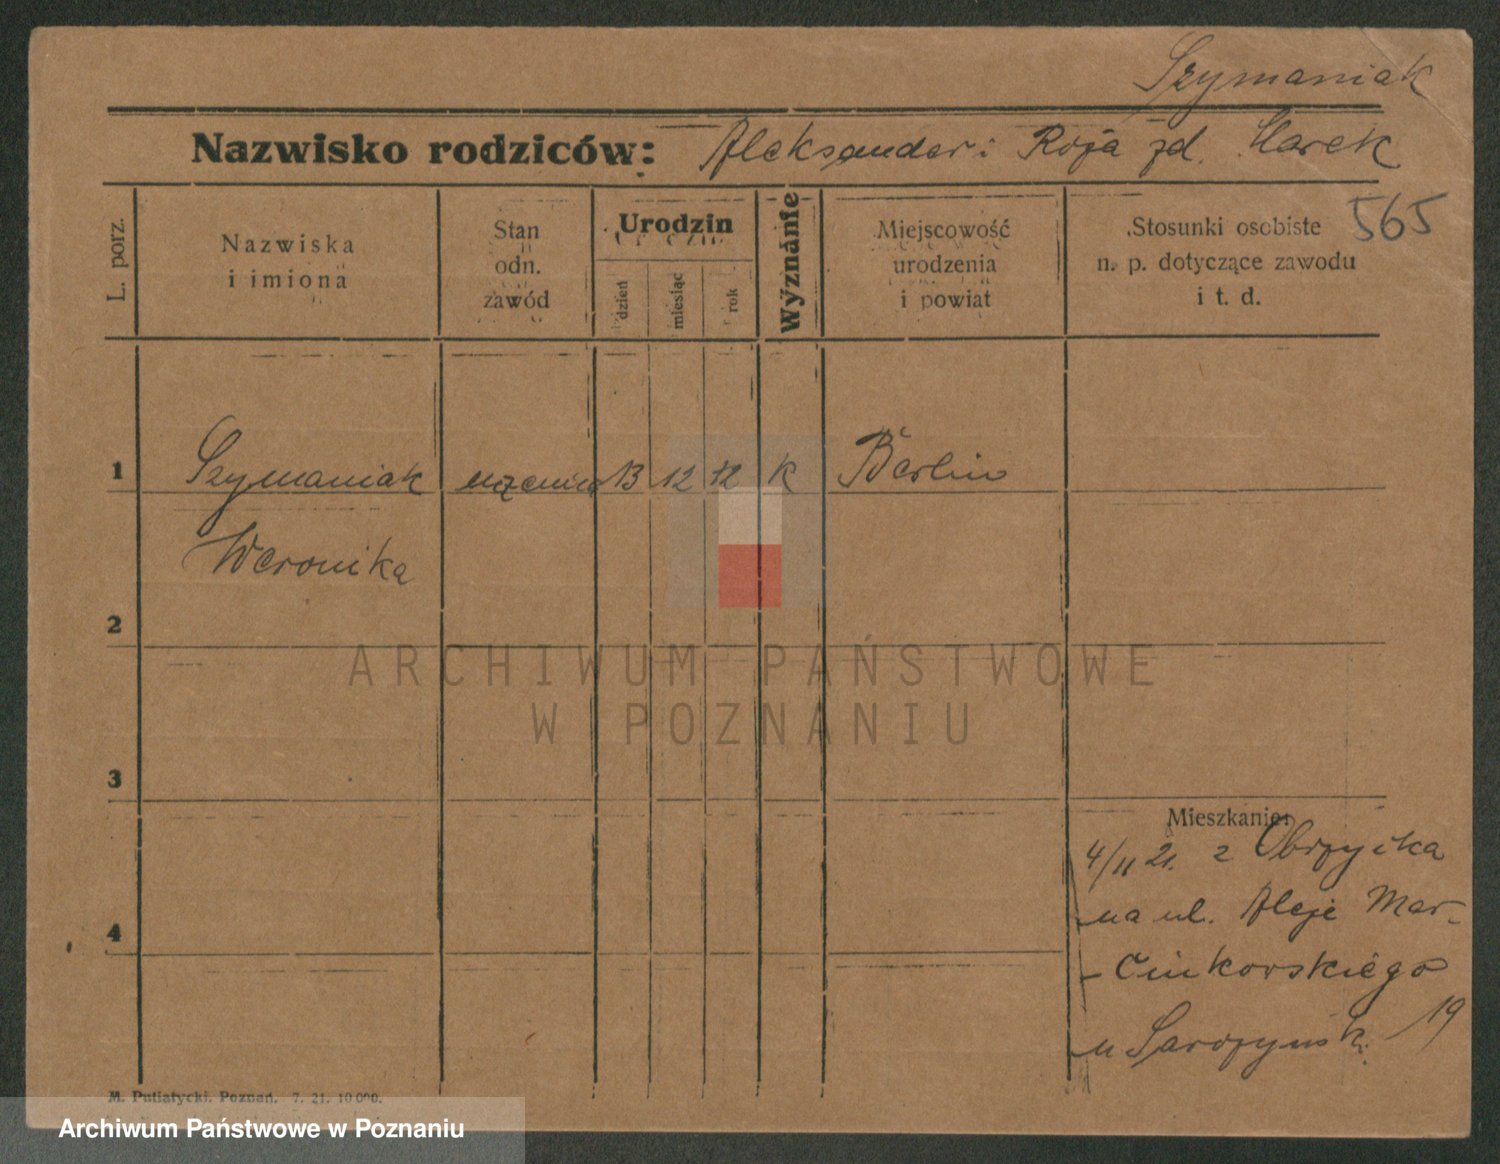 Szymaniak
Nazwisko rodziców: Aleksander i Roża zd. Marek
565
L. porz.
Nazwiska
i imiona
Stan
odn.
zawód
Urodzin
dzień
miesiąc
rok
Wyznanie
Miejscowość
urodzenia
i powiat
Stosunki osobiste
n. p. dotyczące zawodu
i t. d.
1 Szymaniak uczenica 13 12 12 K Berlin
Weronika
2
ARCHIWUM PAŃSTWOWE
W POZNANIU
3
Mieszkanie:
4/11 21. z Obrzycka
na ul. Aleje Mar-
4
-cinkowskiego
19
u
M. Putiatycki, Poznań. 7. 21. 10 000.
Archiwum Państwowe w Poznaniu